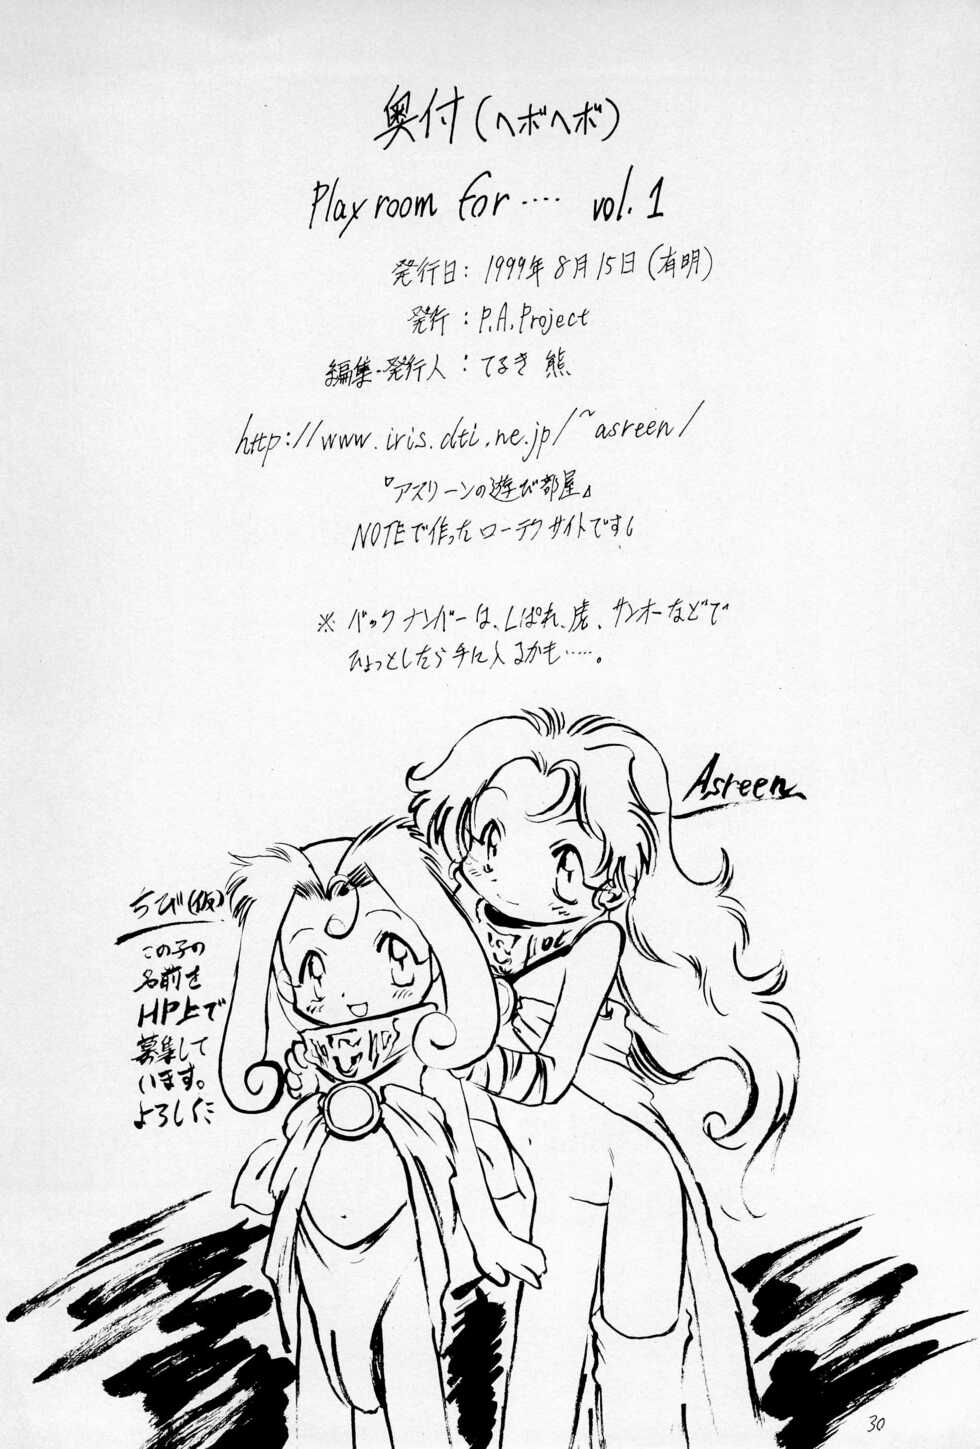 奥付(ヘボヘボ)
Playroom for‥‥ vol.1
発行日: 1999年8月15日(有明)
発行:P.A.Project
編集・発行人:てるき熊
http://www.iris.dti.ne.jp/~asreen/
『アスリーンの遊び部屋』
NOTEで作ったローテクサイトですし
※バックナンバーは、しぱれ、虎、サンオーなどで
ひょっとしたら手に入るかも‥‥。
Asreen
ちび(仮)
この子の
名前を
HP上で
募集して
います。
よろしくに
30